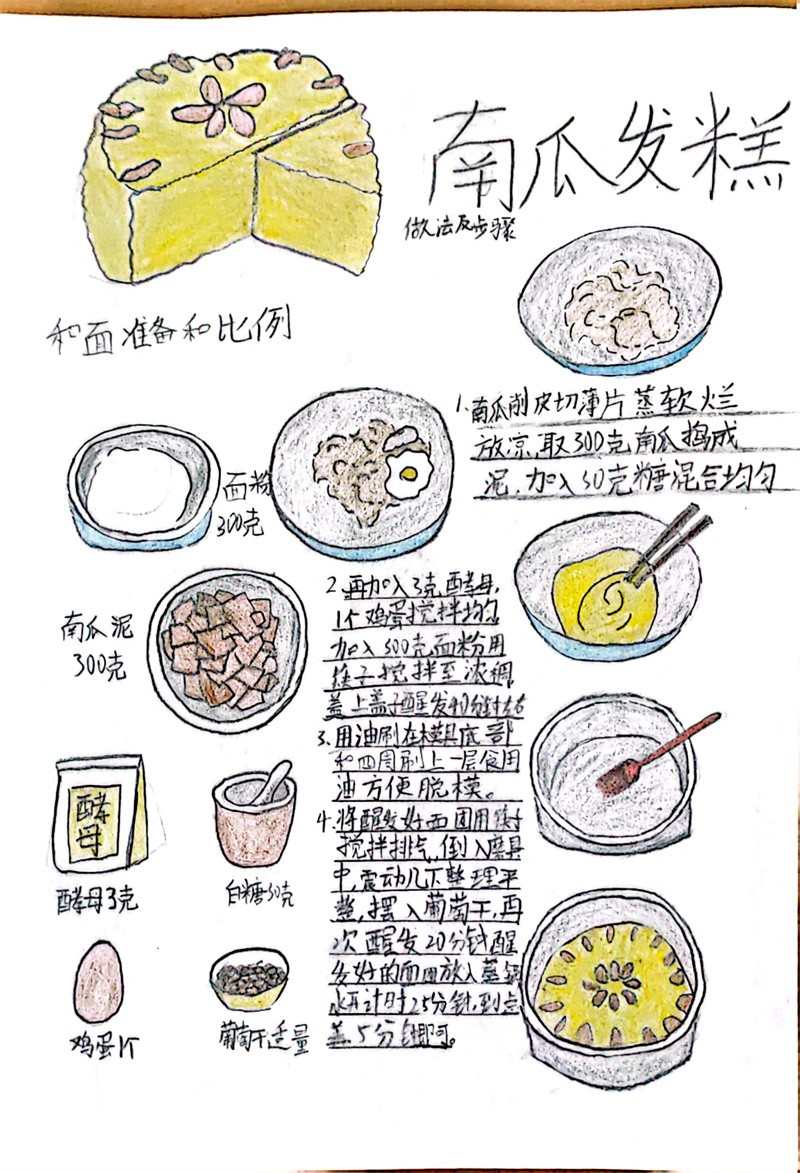 南瓜发糕
做法及步骤
和面准备和比例
面粉
300克
南瓜泥
300克
酵母
酵母3克
白糖30克
鸡蛋1个
葡萄干适量
1.南瓜削皮切薄片蒸软烂
放凉,取300克南瓜捣成
泥,加入30克糖混合均匀
2.再加入3克酵母,
1个鸡蛋搅拌均匀
加入300克面粉用
筷子搅拌至浓稠
盖上盖子醒发40分钟
3.用油刷在模具底部
和四周刷上一层食用
油方便脱模。
4.将醒发好面团用筷子
搅拌排气,倒入磨具
中,震动几下整理平
整,摆入葡萄干,再
次醒发20分钟醒
发好的面团放入蒸锅
水开计时25分钟,到点
盖5分钟即可。